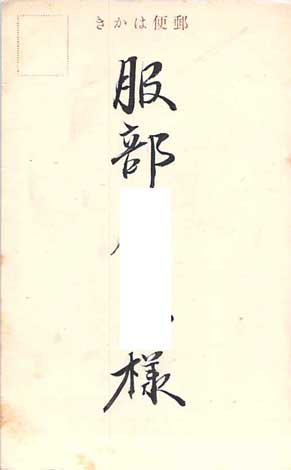 きかは便郵
服部
様